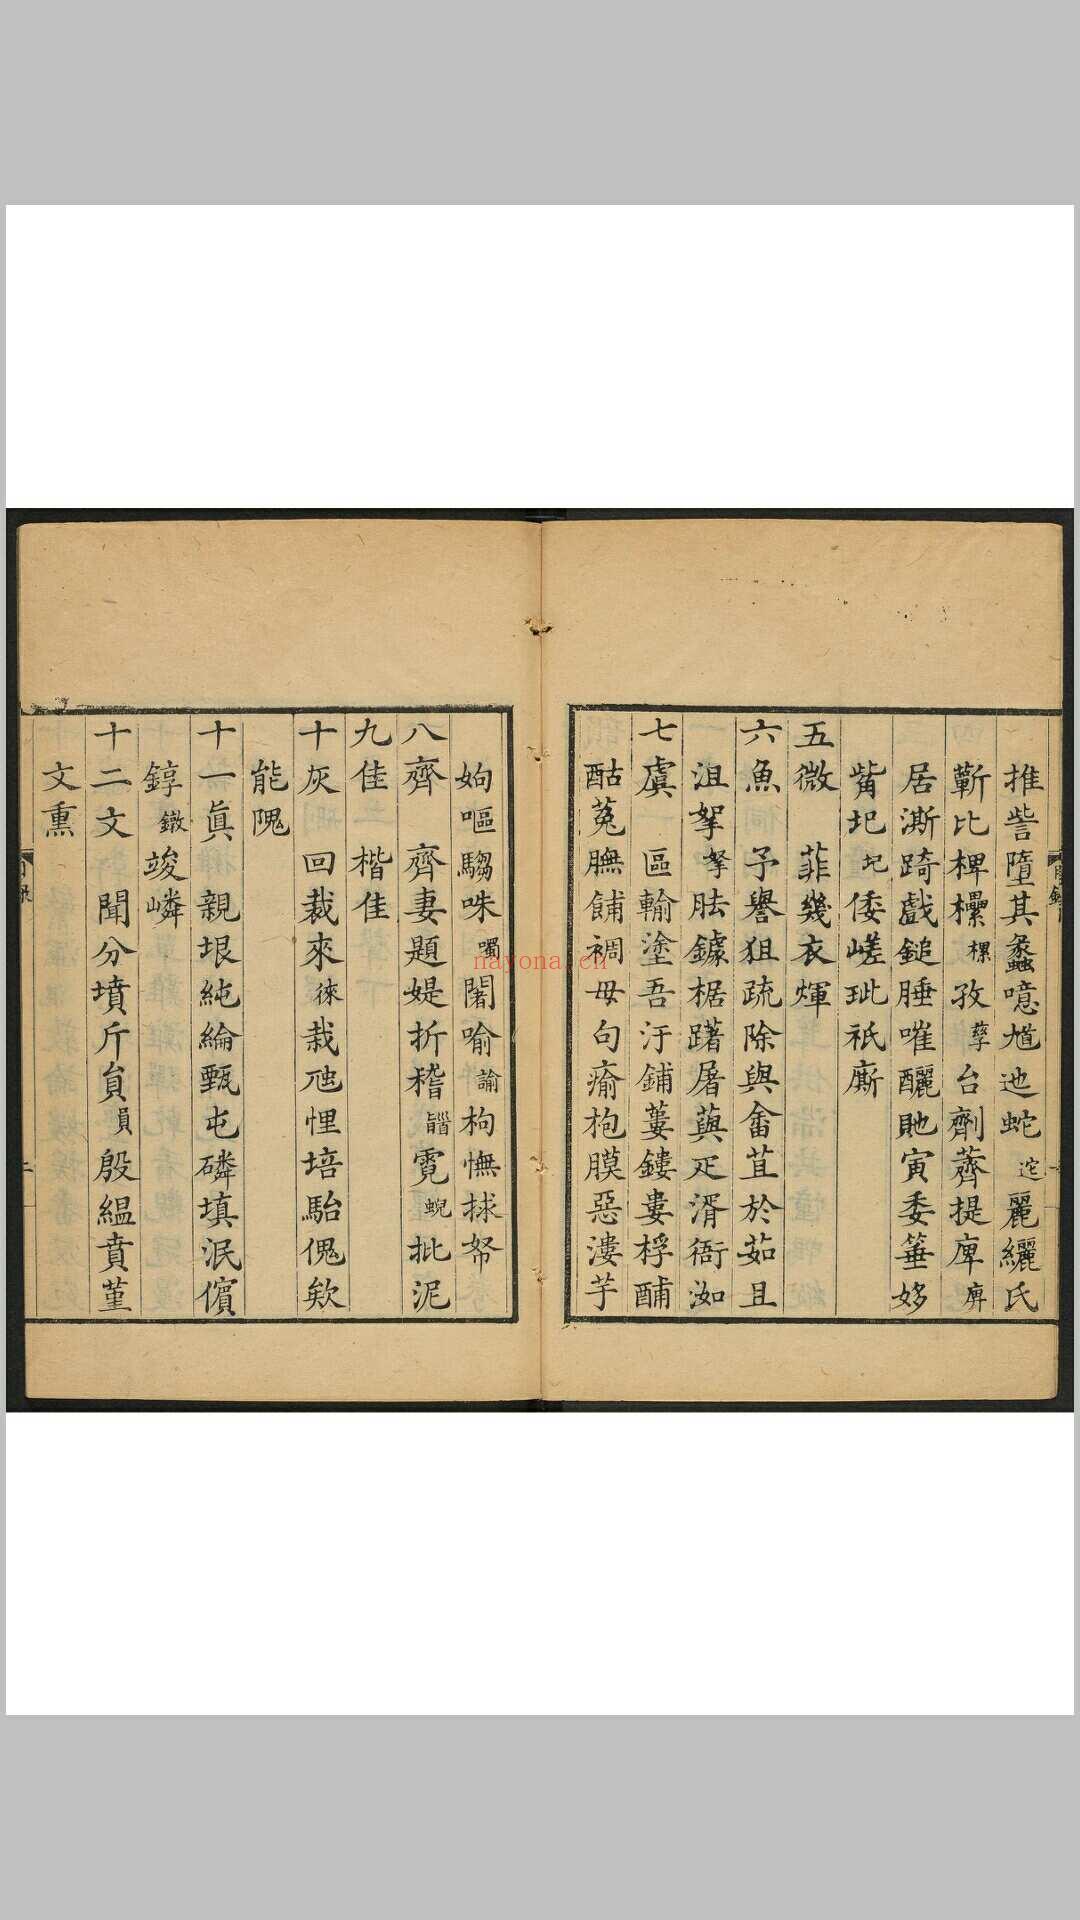 推訾墮其蠡噫尯迆蛇迱麗纚氏
蘄比椑欙樏孜孳台劑薺提庳庳
居澌踦戲鎚腄嗺釃貤寅委箠姼
觜圯圮倭嵯玼祇廝
五微 菲幾衣煇
六魚 予譽狙疏除與畬苴於茹且
沮挐拏胠鐻椐躇屠蕮疋湑衙洳
七虞 區輸塗吾汙鋪蔞鏤婁桴酺
酤菟膴餔裯毋句瘉枹膜惡漊芋
姁嘔騶咮噣闍喻諭枸憮捄帑
八齊 齊妻題媞折稽霓蜺批泥
九佳 楷佳
十灰 回裁來徠栽悝培駘傀欸
能隗
十一眞 親垠純綸甄屯磷填泯儐
錞鐓竣嶙
十二文 聞分墳斤員殷縕賁堇
文熏
目錄
二
nayona.cn